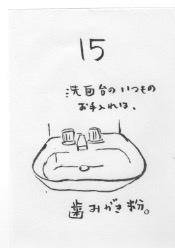 15
洗面台のいつもの
お手入れは、
歯みがき粉。